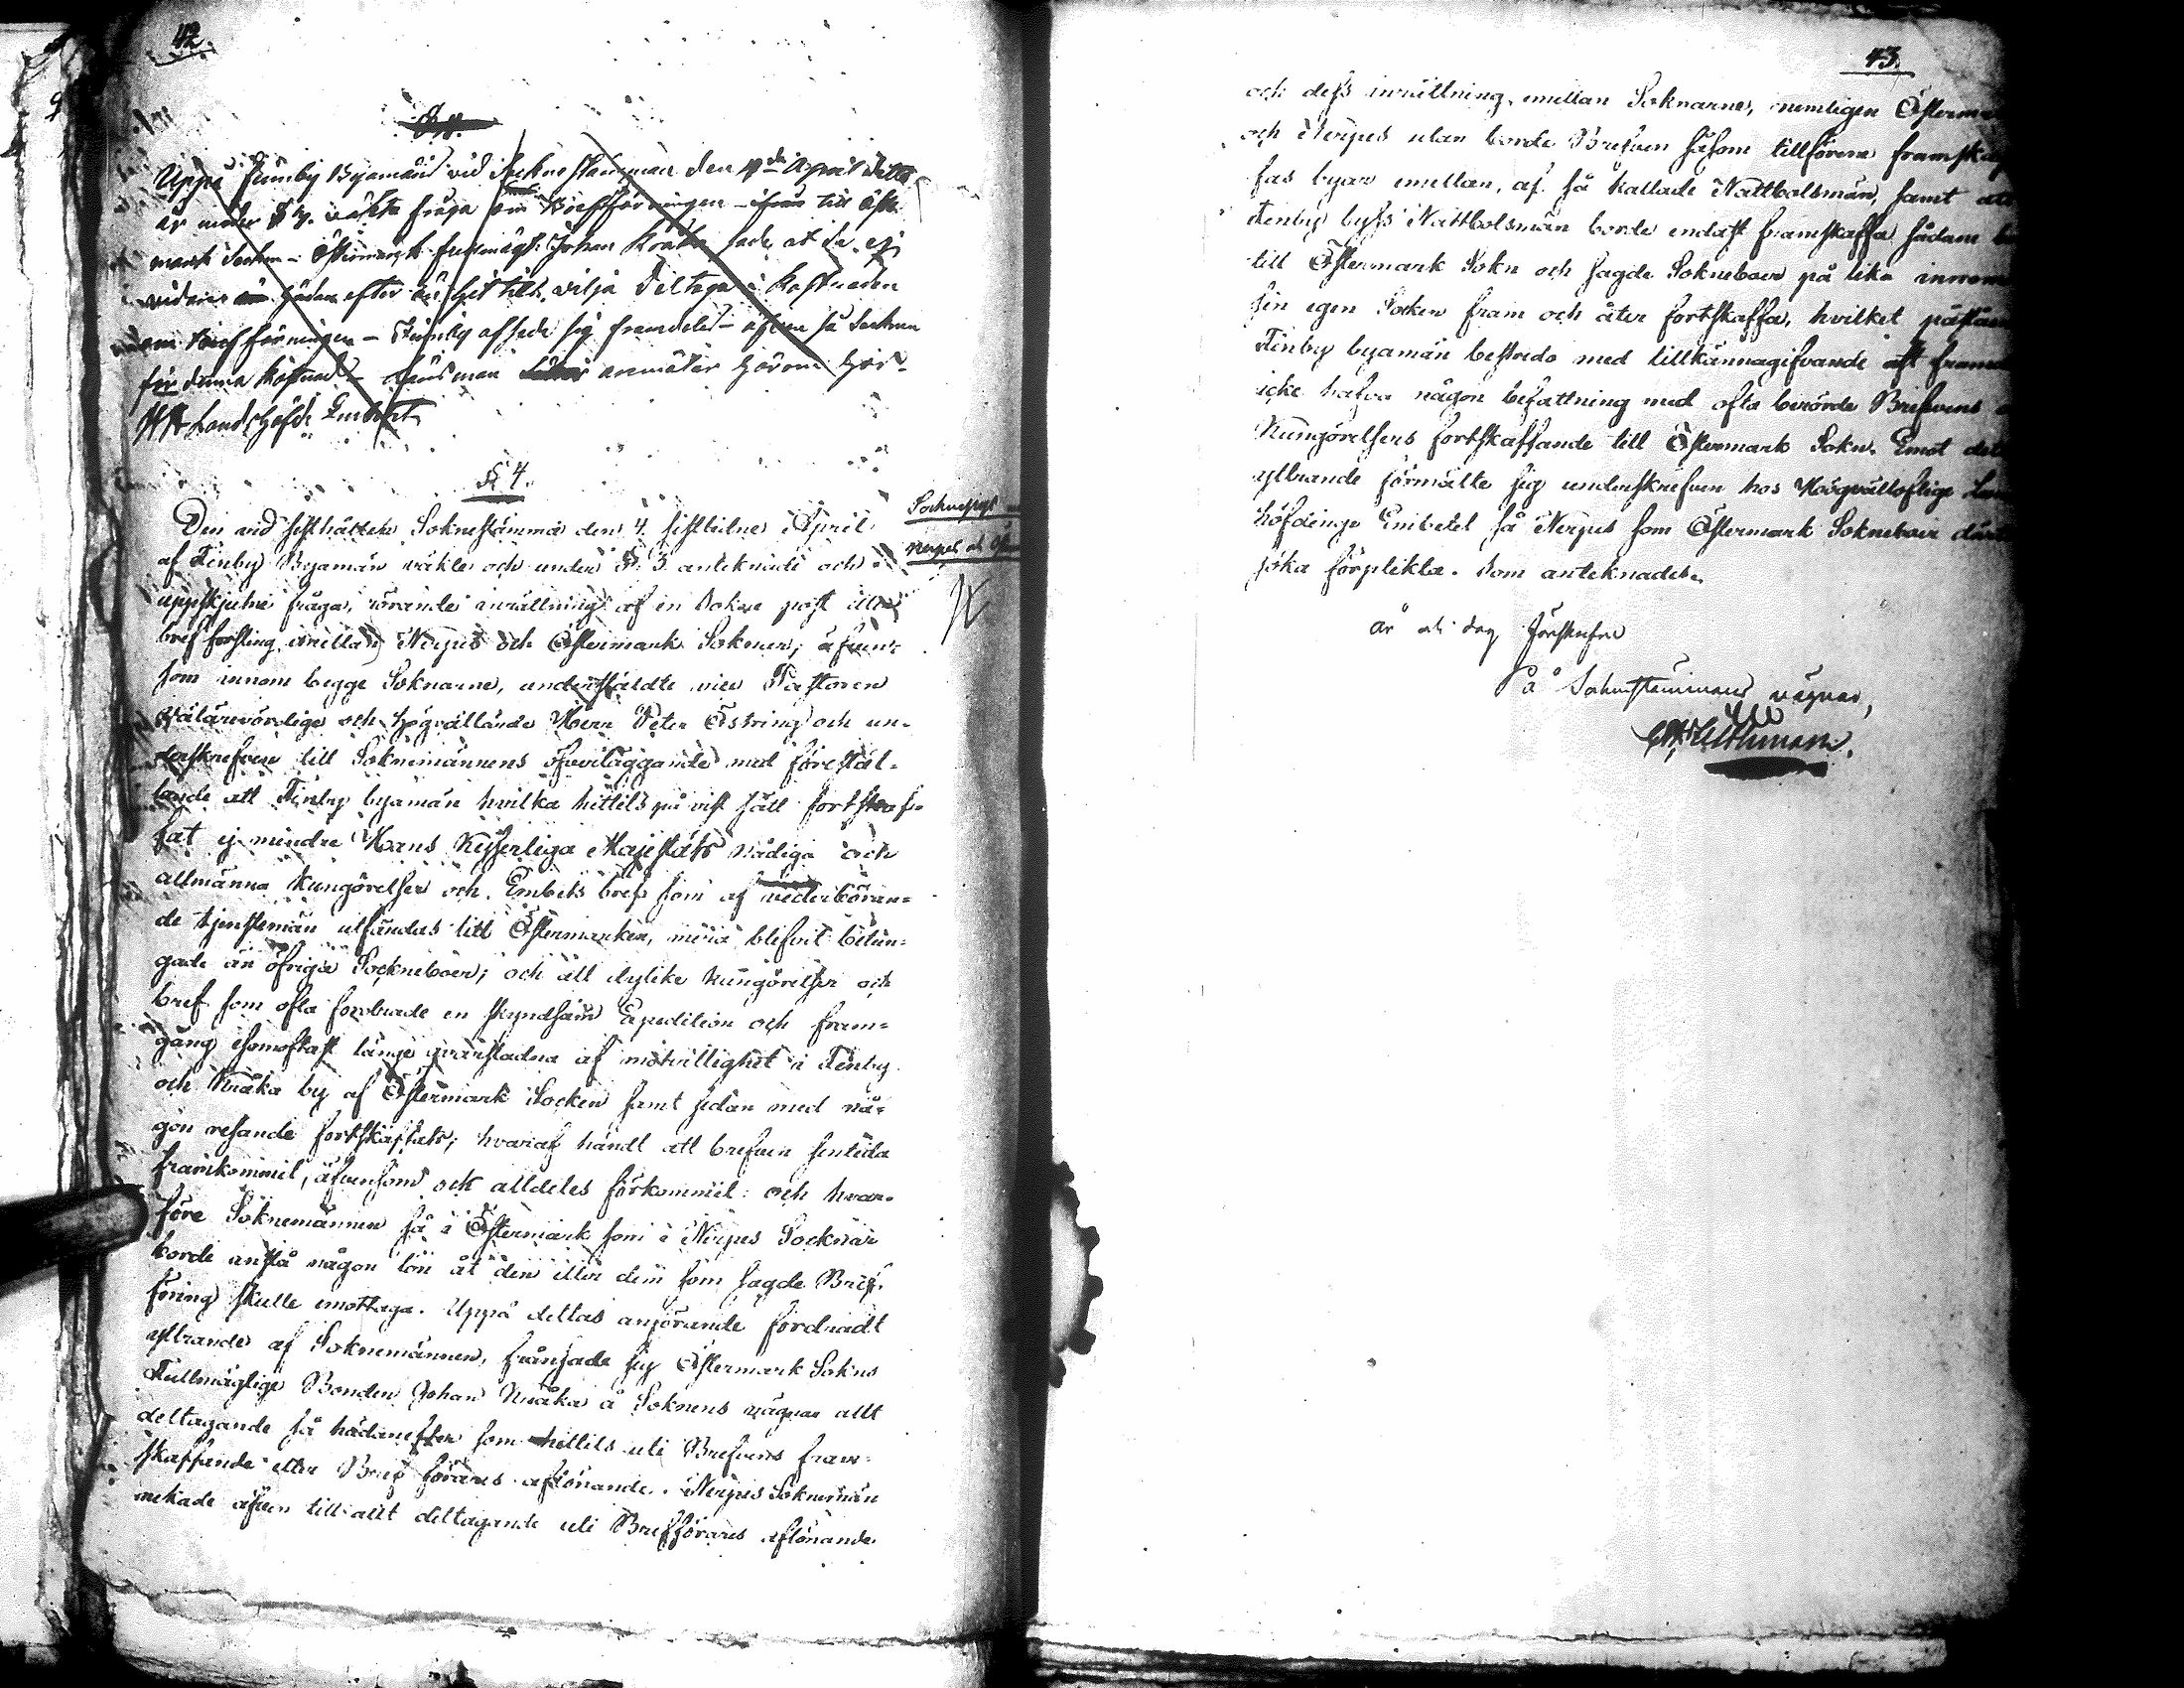 42.
§ 4.
Uppå Finby Byamäns vid Sockne stämman den 4de April detta
år under § 3. väkta fråga om Brefförningen till Öster
mark Socken - Östermark fullmägt. Johan Knåka sade at de ej
vidare hädan efter än hit tills, vilja deltaga i kostnaden
om Brefförningen - Finby afsade sig framdeles - äfven så Socknen
för denna kostnad - Länsman anmäler härom hos
Landshöfd: Embetet
§ 4.
Den vid sisthållne Soknestämma den 4 sistledne April
af Finby Byamän väkte och under § 3 anteknade och
uppskjutne fråga, rörande inrättning af en Sokne post eller
bref forsling emellan Nerpes och Östermark Soknar, äfven
som innom begge Soknarne, understäldte vice Pastoren
Välärevördige och Högvällärde Herr Peter Östring och un-
derskrefven till Soknemännens öfverläggande med förestäl-
lande att Finby byamän hvilka hittils på vist sätt fortskaf-
fat ej mindre Hans Kejserliga Majestäts nådiga och
allmänna Kungörelser och Embets bref som af vederböran-
de tjenstemän utsändas till Östermarken, mera blifvit betun-
gade än öfriga Sockneboer; och att dylike kungörelser och
bref som ofta fordrade en skyndsam Expedition och fram-
gång esomoftast länge qvarstadna af motvillighet i Finby
och Knåka by af Östermark Socken samt sedan med nå-
gon resande fortskaffats; hvaraf händt att brefven sentida
framkommit, äfvensom ock alldeles förkommit: och hvar-
före Soknemännen så i Östermark som i Nerpes Socknar
borde anslå någon lön åt den eller dem som sagde Bref-
föring skulle emottaga. Uppå dettas anförande fordradt
yttrande af Soknemännen, frånsade sig Östermark Sokns
Fullmägtige Bonden Johan Knåka å Soknens vägnar allt
deltagande så hädanefter som hittils uti Brefvens fram-
skaffande eller Bref förares aflönande. Nerpes Soknemän
nekade äfven till allt deltagande uti Brefförares aflönande
Sockneposst
Nerpes och
43.
och dess inrättning emellan Soknarne, nemligen
och Nerpes utan borde Brefven såsom tillförene
fas byar emellan, af så kallade Nattbolsmän, samt att
Finby bys Nattbolsmän borde endast framskaffa sådane
till Östermark Sokn och sagde Sokneboer på lika
sin egen Socken fram och åter fortskaffa, hvilket
Finby byamän bestredo med tillkännagifvande att
icke hafva någon befattning med ofta berörde Brefvens
Kungörelsers fortskaffande till Östermark Sokn. Emot
yttrande förmälte sig underskrefven hos Högvälloflige
höfdinge Embetet så Nerpes som Östermark Sokneboer
söka förplikta. Som anteknades.
år och dag förskrefne
På Socknestämmans vägnar,